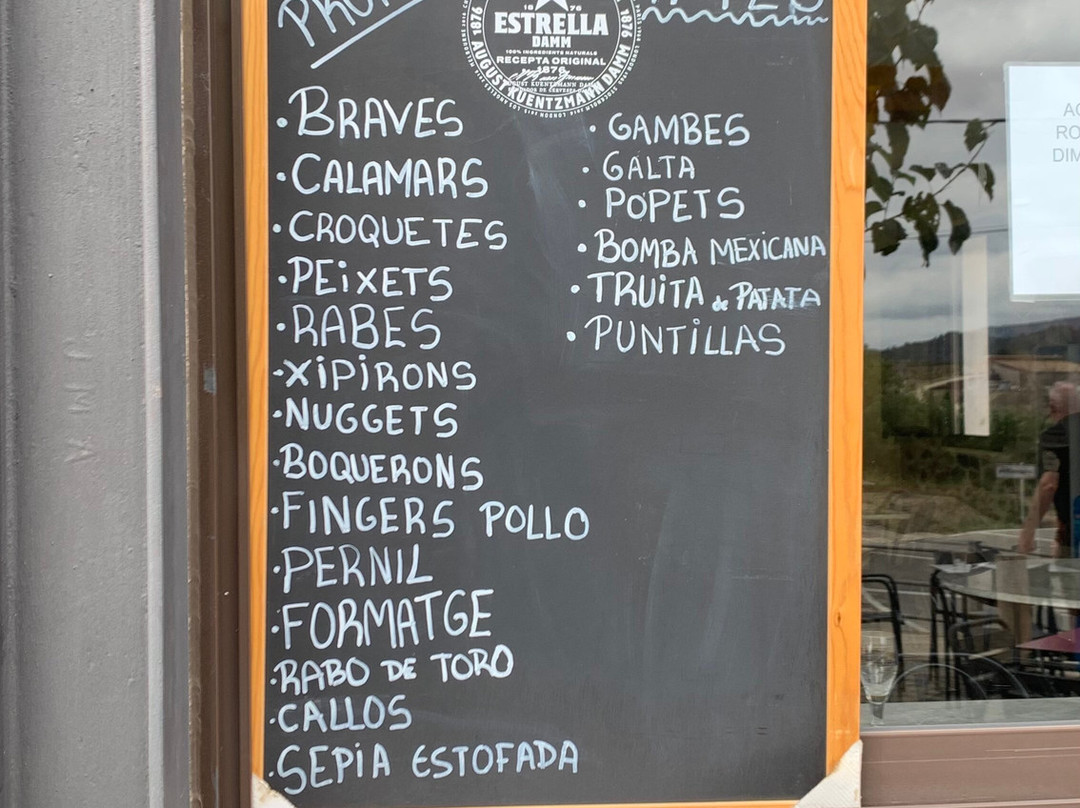 1876
ESTRELLA
DAMM
100% INGREDIENTS NATURALS
RECEPTA ORIGINAL
1876
AUGUST KUENTZMANN DAMM
1876
1876
• BRAVES
• CALAMARS
• CROQUETES
• PEiXETS
• RABES
• XiPiRONS
• NUGGETS
• BOQUERONS
• FINGERS POLLO
• PERNIL
• FORMATGE
• RABO DE TORO
• CALLOS
• SEPiA ESTOFADA
• GAMBES
• GALTA
• POPETS
• BOMBA MEXICANA
• TRUiTA de PATATA
• PUNTiLLAS